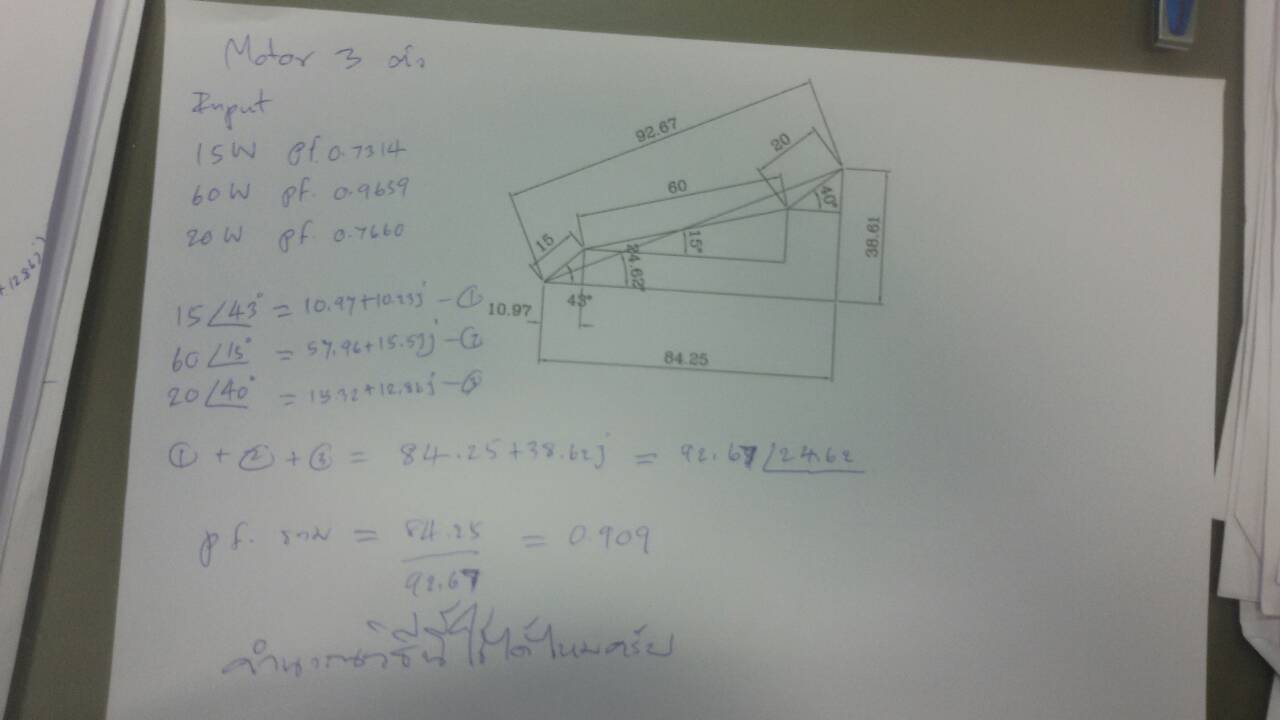 Motor 3 ตัว
Input
15W pf. 0.7314
60W pf. 0.9659
20W pf. 0.7660
15∠43° = 10.97+10.23j -①
60∠15° = 57.96+15.53j -②
20∠40° = 15.32+12.86j -③
① + ② + ③ = 84.25+38.62j = 92.67∠24.62
pf. รวม = 84.25 / 92.67 = 0.909
คำนวณวิธีนี้ใช้ได้ไหมครับ
92.67
20
60
40°
15
15°
38.61
24.62°
43°
10.97
84.25